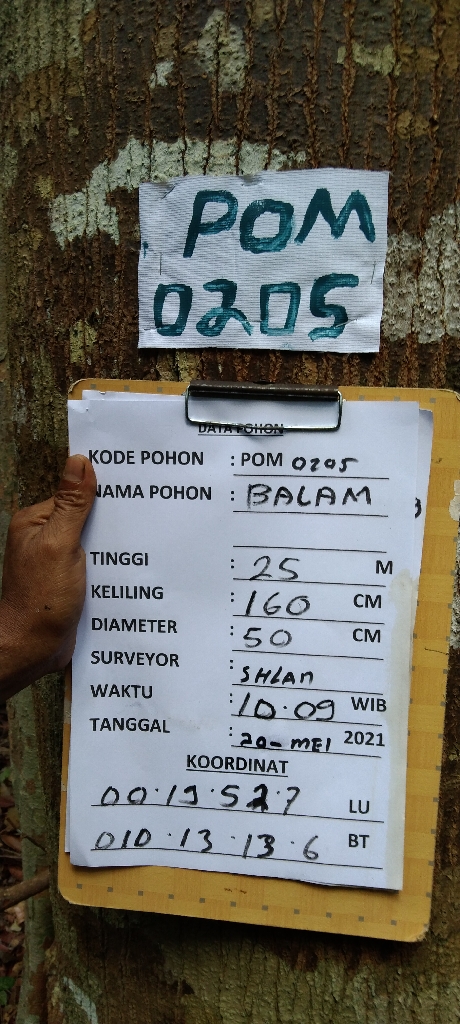 POM
0205
DATA POHON
KODE POHON : POM 0205
NAMA POHON : BALAM
TINGGI : 25 M
KELILING : 160 CM
DIAMETER : 50 CM
SURVEYOR : SHLAN
WAKTU : 10.09 WIB
TANGGAL : 20-MEI 2021
KOORDINAT
00.19.52.7 LU
010.13.13.6 BT